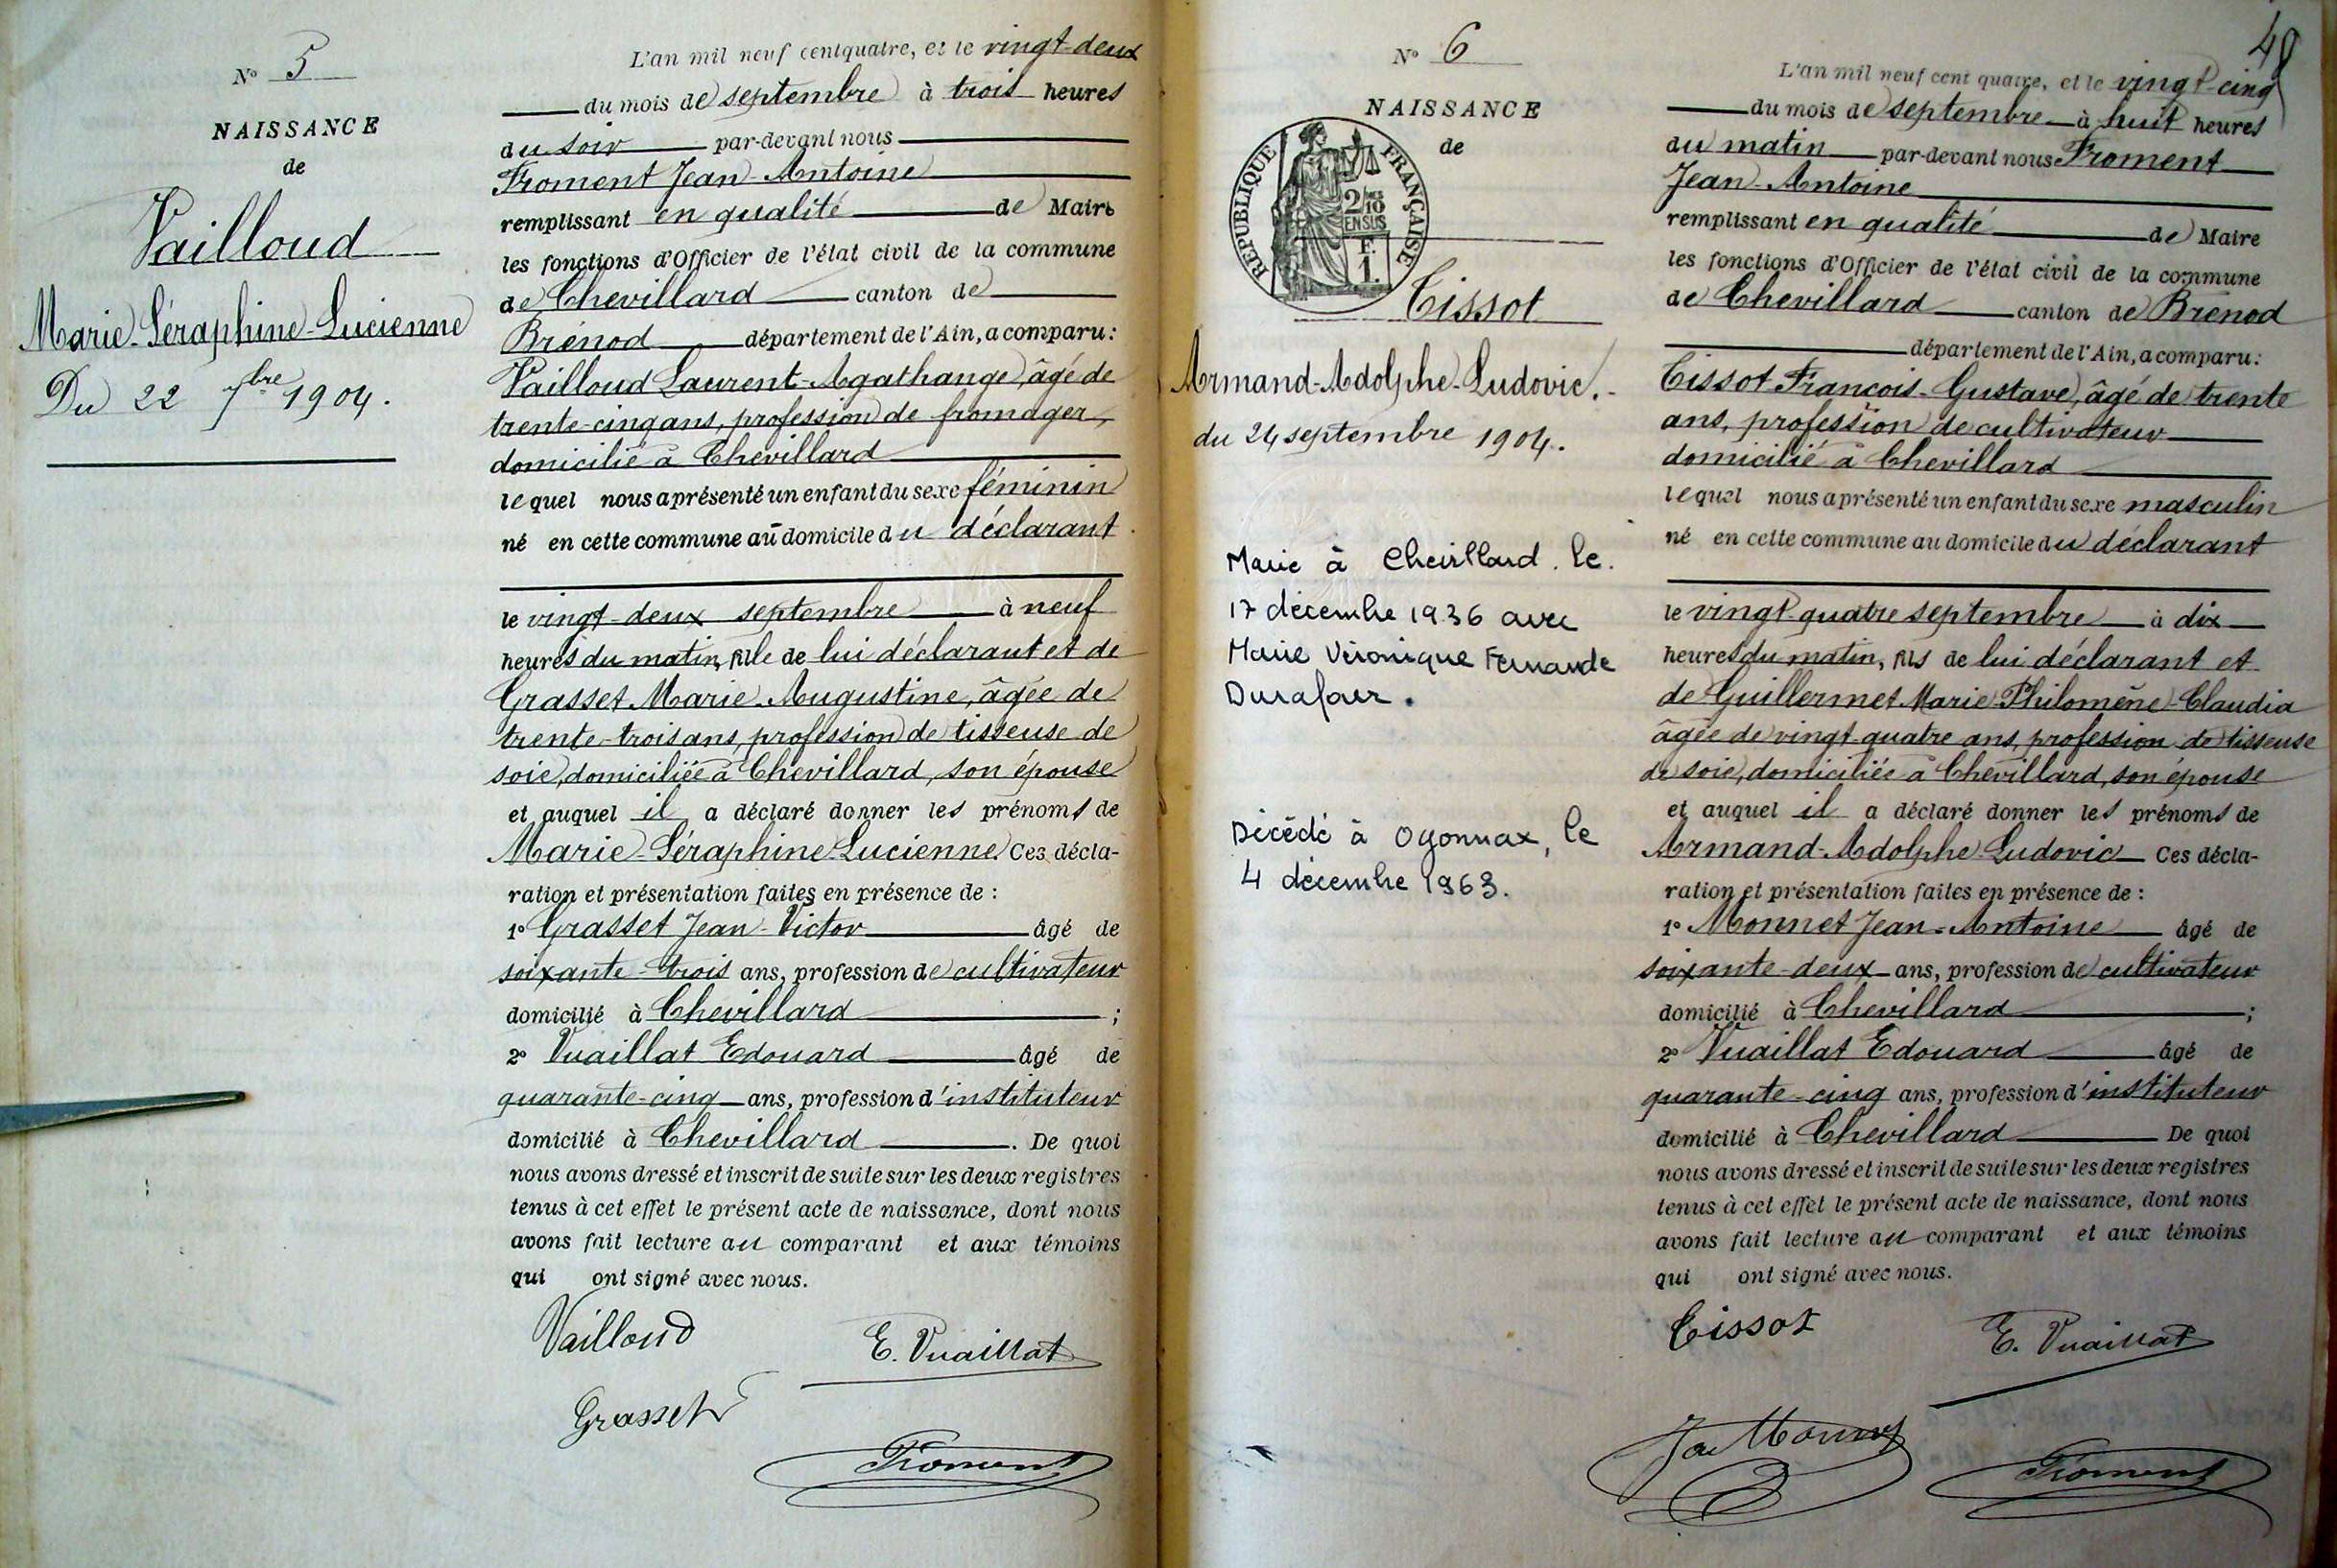 N° 5
NAISSANCE
de
Vailloud
Marie-Séraphine-Lucienne
Du 22 7bre 1904.
L'an mil neuf cent quatre, et le vingt-deux
du mois de septembre à trois heures
du soir par-devant nous
Froment Jean-Antoine
remplissant en qualité de Maire
les fonctions d'Officier de l'état civil de la commune
de Chevillard canton de
Brénod département de l'Ain, a comparu:
Vailloud Laurent-Agathange, âgé de
trente-cinq ans, profession de fromager,
domicilié à Chevillard
lequel nous a présenté un enfant du sexe féminin
né en cette commune au domicile du déclarant
le vingt-deux septembre à neuf
heures du matin, fille de lui déclarant et de
Grasset Marie-Augustine, âgée de
trente-trois ans, profession de tisseuse de
soie, domiciliée à Chevillard, son épouse
et auquel il a déclaré donner les prénoms de
Marie-Séraphine-Lucienne. Ces décla-
ration et présentation faites en présence de :
1° Grasset Jean-Victor âgé de
soixante-trois ans, profession de cultivateur
domicilié à Chevillard ;
2° Vuaillat Edouard âgé de
quarante-cinq ans, profession d'instituteur
domicilié à Chevillard . De quoi
nous avons dressé et inscrit de suite sur les deux registres
tenus à cet effet le présent acte de naissance, dont nous
avons fait lecture au comparant et aux témoins
qui ont signé avec nous.
Vailloud
E. Vuaillat
Grasset
Froment
48
N° 6
NAISSANCE
de
RÉPUBLIQUE FRANÇAISE
2/10
EN SUS
F.
1.
Tissot
Armand-Adolphe-Ludovic.
du 24 septembre 1904.
Marié à Chevillard. le.
17 décembre 1936 avec
Marie Véronique Fernande
Durafour.
Décédé à Oyonnax, le
4 décembre 1963.
L'an mil neuf cent quatre, et le vingt-cinq
du mois de septembre à huit heures
du matin par-devant nous Froment
Jean-Antoine
remplissant en qualité de Maire
les fonctions d'Officier de l'état civil de la commune
de Chevillard canton de Brénod
département de l'Ain, a comparu:
Tissot François-Gustave, âgé de trente
ans, profession de cultivateur
domicilié à Chevillard
lequel nous a présenté un enfant du sexe masculin
né en cette commune au domicile du déclarant
le vingt-quatre septembre à dix
heures du matin, fils de lui déclarant et
de Guillermet Marie-Philomène-Claudia
âgée de vingt-quatre ans, profession de tisseuse
de soie, domiciliée à Chevillard, son épouse
et auquel il a déclaré donner les prénoms de
Armand-Adolphe-Ludovic Ces décla-
ration et présentation faites en présence de :
1° Monnet Jean-Antoine âgé de
soixante-deux ans, profession de cultivateur
domicilié à Chevillard ;
2° Vuaillat Edouard âgé de
quarante-cinq ans, profession d'instituteur
domicilié à Chevillard De quoi
nous avons dressé et inscrit de suite sur les deux registres
tenus à cet effet le présent acte de naissance, dont nous
avons fait lecture au comparant et aux témoins
qui ont signé avec nous.
Tissot
E. Vuaillat
Froment